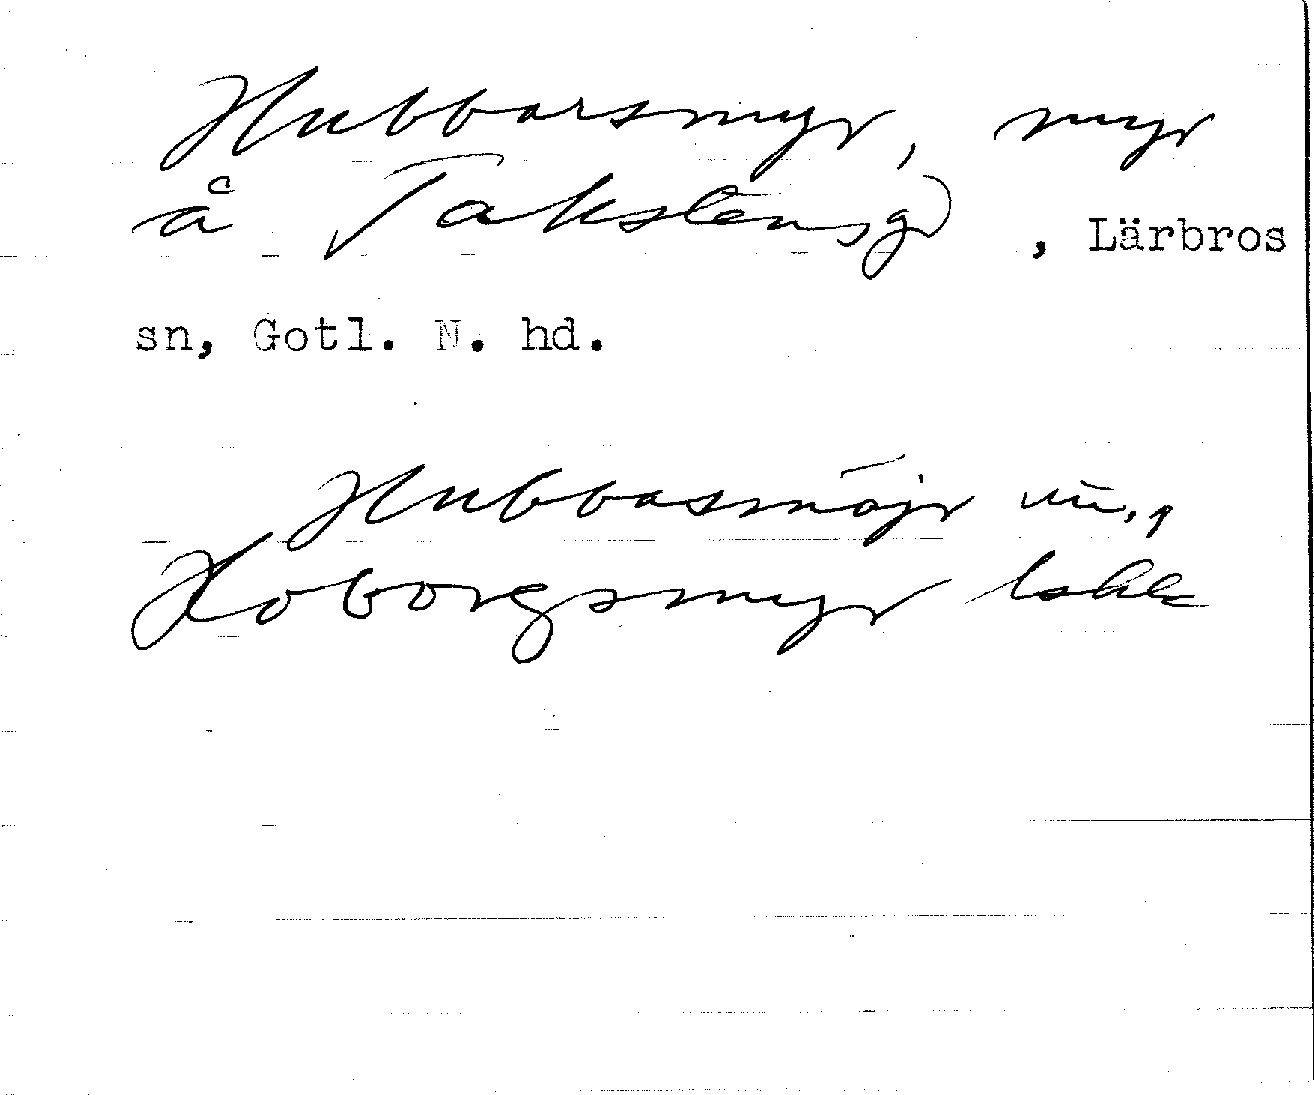 Hubbarsmyr, myr
å Takstensg, Lärbros
sn, Gotl. N. hd.
Hubbasmöjr
Hoborgsmyr